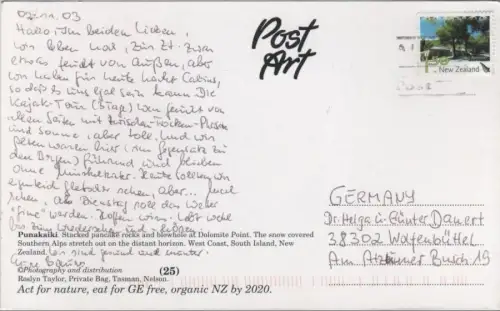 07.11.03
Hallo, Ihr beiden Lieben,
wir leben noch, zur Zt. zwar
etwas feucht von außen, aber
wir haben für heute Nacht Cabins,
so daß es uns egal sein kann. Die
Kajak-Tour (3 Tage) war feucht von
allen Seiten mit zwischen-Trocken-Phasen
und Sonne, aber toll. Und wir
waren hier (im Gegensatz zu
den) führend und blieben
ohne. Heute sollten wir
eigentlich Gletscher sehen, aber... Mal
sehen, ab Dienstag soll das Wetter
"fine" werden. Hoffen wirs. Lebt wohl
bis zum Wiedersehen und
Wir sind gesund und munter.
Post
Art
New Zealand
GERMANY
Dr. Helga & Günter Danert
38302 Wolfenbüttel
Am Atzumer Busch 19
Punakaiki Stacked pancake rocks and blowhole at Dolomite Point. The snow covered
Southern Alps stretch out on the distant horizon. West Coast, South Island, New
Zealand.
©Photography and distribution (25)
Roslyn Taylor, Private Bag, Tasman, Nelson.
Act for nature, eat for GE free, organic NZ by 2020.